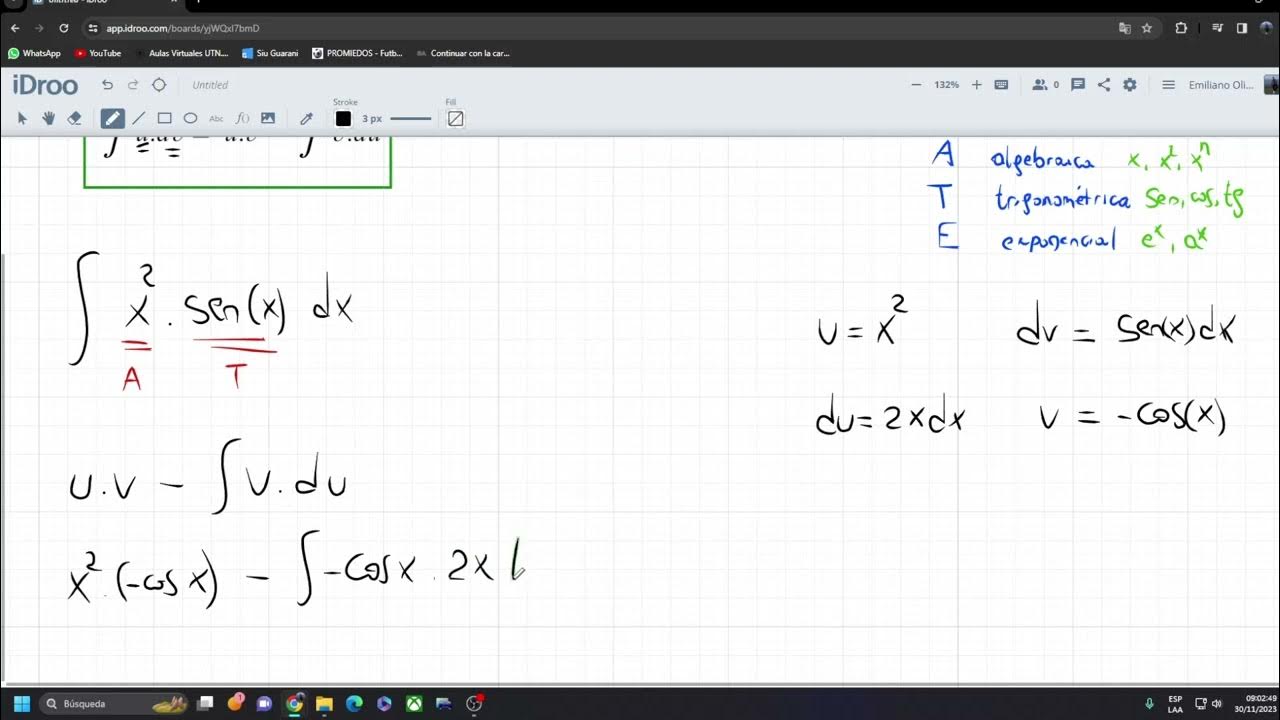 app.idroo.com/boards/yjWQxI7bmD
WhatsApp YouTube Aulas Virtuales UTN.... Siu Guarani PROMIEDOS - Futb... Continuar con la car...
iDroo Untitled 132% 0 Emiliano Oli...
Stroke Fill
Abc f() 3 px
A algebraica x, x², xⁿ
T trigonométrica sen, cos, tg
E exponencial eˣ, aˣ
∫ x² . sen(x) dx
A T
u = x² dv = sen(x)dx
du = 2xdx v = -cos(x)
u.v - ∫ v. du
x².(-cos x) - ∫ -cos x . 2x
Búsqueda 1 ESP 09:02:49
LAA 30/11/2023